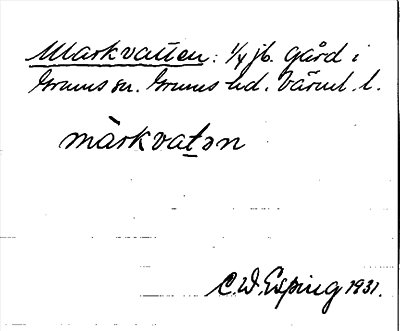 Markvatten: 1/4 jb. gård i
Grums sn. Grums hd. Värml. l.
màrkvatən
C.W. Esping 1931.